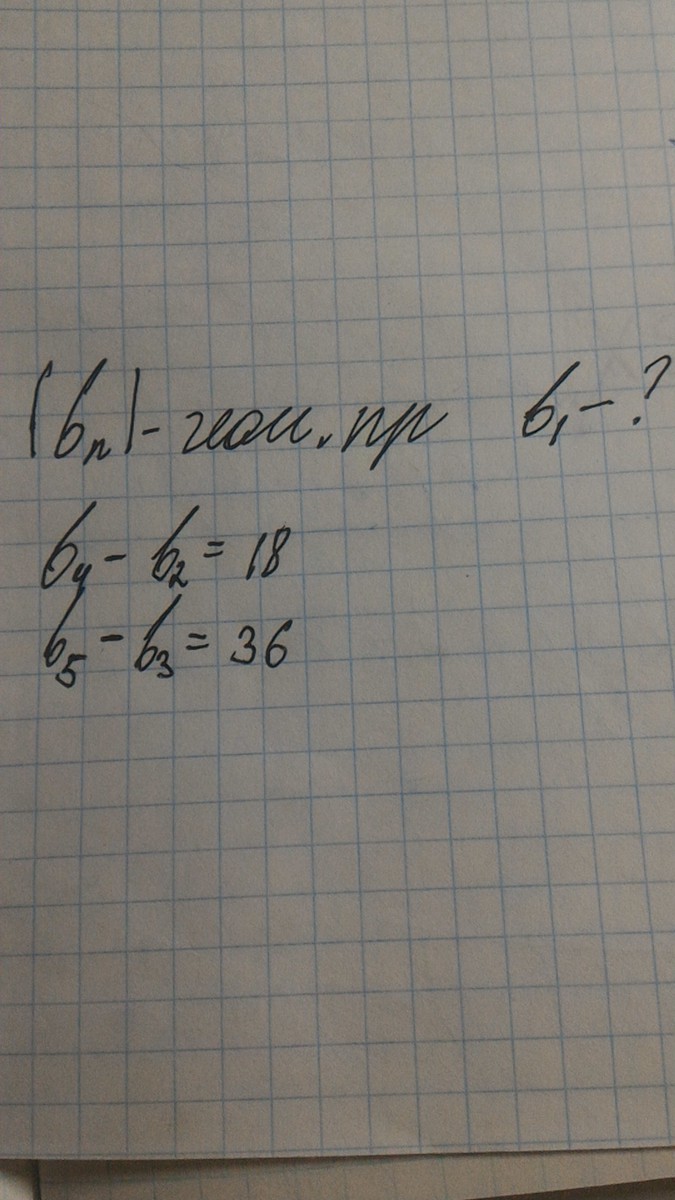 (bₙ) - геом. пр b₁ - ?
b₄ - b₂ = 18
b₅ - b₃ = 36